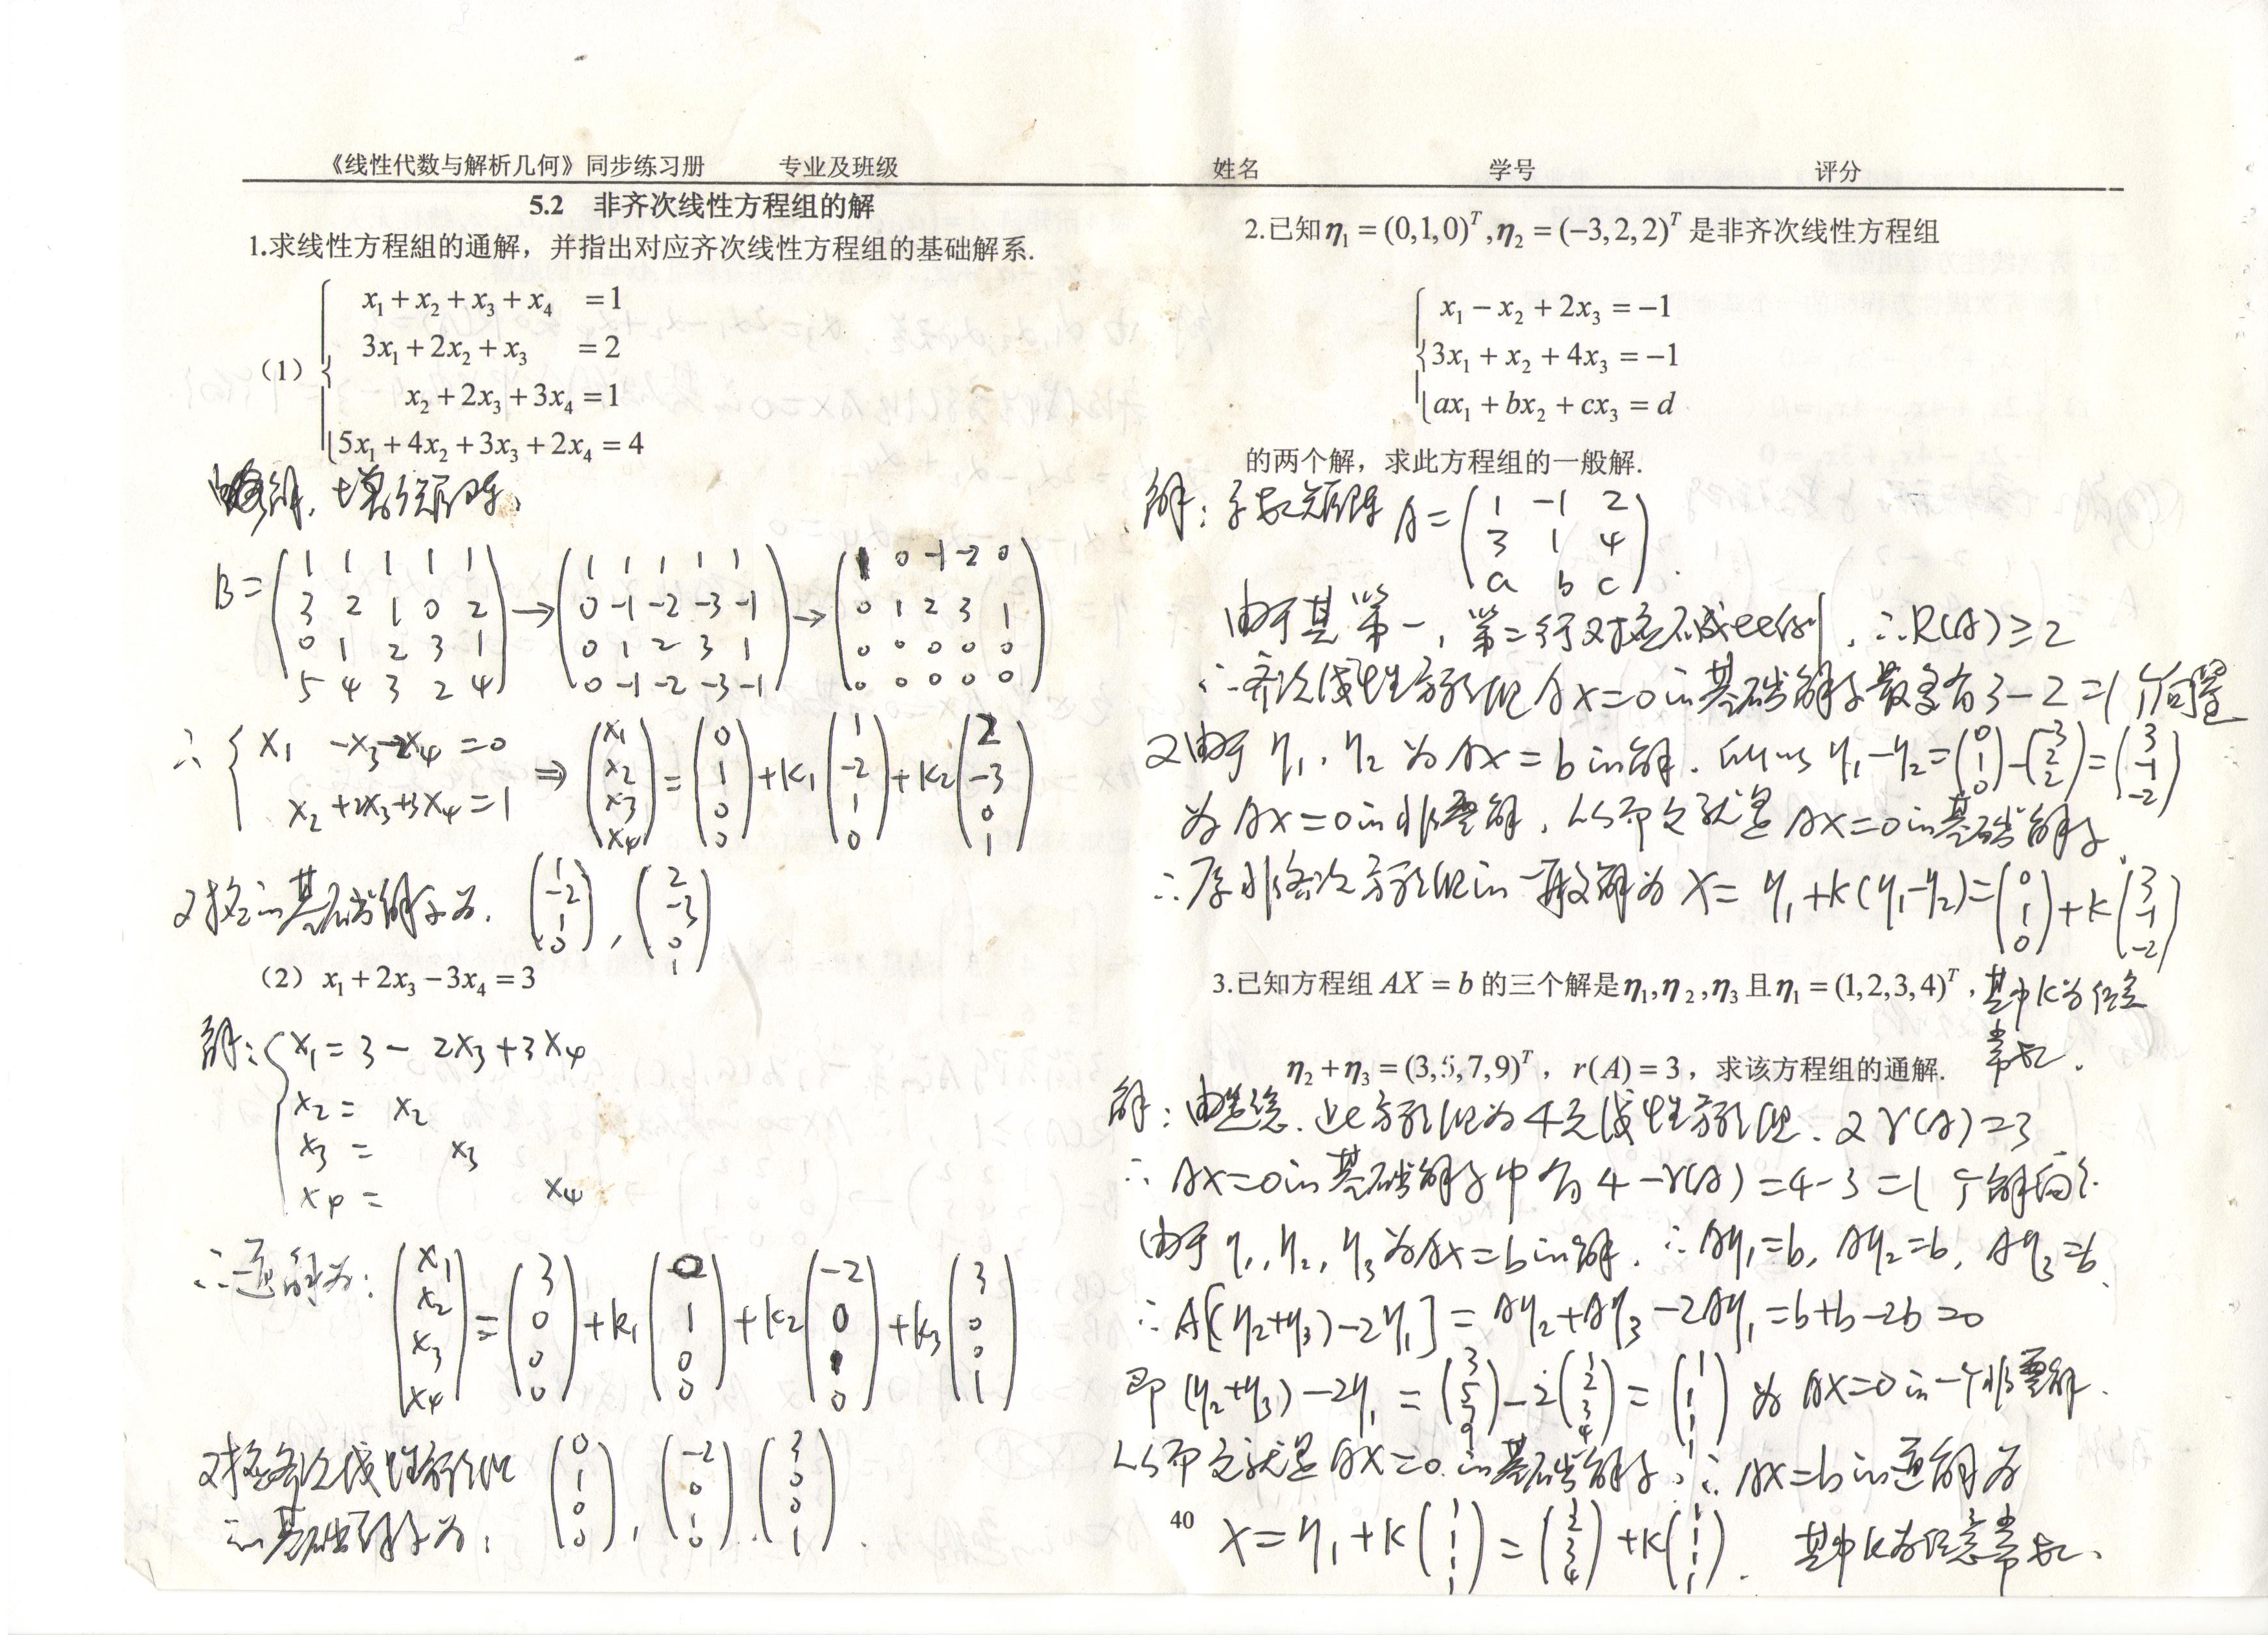 《线性代数与解析几何》同步练习册 专业及班级 姓名 学号 评分
5.2 非齐次线性方程组的解
1.求线性方程組的通解，并指出对应齐次线性方程组的基础解系.
（1）
x₁ + x₂ + x₃ + x₄ = 1
3x₁ + 2x₂ + x₃ = 2
x₂ + 2x₃ + 3x₄ = 1
5x₁ + 4x₂ + 3x₃ + 2x₄ = 4
解. 增行矩阵:
B = (1 1 1 1 1; 3 2 1 0 2; 0 1 2 3 1; 5 4 3 2 4) → (1 1 1 1 1; 0 -1 -2 -3 -1; 0 1 2 3 1; 0 -1 -2 -3 -1) → (1 0 -1 -2 0; 0 1 2 3 1; 0 0 0 0 0; 0 0 0 0 0)
∴ { x₁ -x₃-2x₄ = 0; x₂+2x₃+3x₄ = 1 ⇒ (x₁; x₂; x₃; x₄) = (0; 1; 0; 0) + k₁(1; -2; 1; 0) + k₂(2; -3; 0; 1)
对应的基础解系为. (1; -2; 1; 0), (2; -3; 0; 1)
（2） x₁ + 2x₃ − 3x₄ = 3
解: x₁ = 3 - 2x₃ + 3x₄
x₂ = x₂
x₃ = x₃
x₄ = x₄
∴ 通解为: (x₁; x₂; x₃; x₄) = (3; 0; 0; 0) + k₁(0; 1; 0; 0) + k₂(-2; 0; 1; 0) + k₃(3; 0; 0; 1)
对应齐次线性方程组
的基础解系为: (0; 1; 0; 0), (-2; 0; 1; 0), (3; 0; 0; 1).
2.已知η₁ = (0,1,0)ᵀ,η₂ = (−3,2,2)ᵀ 是非齐次线性方程组
x₁ − x₂ + 2x₃ = −1
3x₁ + x₂ + 4x₃ = −1
ax₁ + bx₂ + cx₃ = d
的两个解，求此方程组的一般解.
解: 系数矩阵 A = (1 -1 2; 3 1 4; a b c).
由于其第一, 第二行对应不成比例, ∴R(A) ≥ 2
∴齐次线性方程组AX=0的基础解系最多有3-2=1个向量
又由于η₁, η₂为AX=b的解. 所以η₁-η₂ = (0; 1; 0) - (-3; 2; 2) = (3; -1; -2)
为AX=0的非零解, 从而它就是AX=0的基础解系.
∴原非齐次方程组的一般解为 X = η₁+k(η₁-η₂) = (0; 1; 0) + k(3; -1; -2)
其中k为任意
常数.
3.已知方程组 AX = b 的三个解是η₁,η₂,η₃ 且η₁ = (1,2,3,4)ᵀ,
η₂ + η₃ = (3,5,7,9)ᵀ，r(A) = 3，求该方程组的通解.
解: 由题意. 此方程组为4元线性方程组. 又r(A)=3
∴ AX=0的基础解系中有4-r(A)=4-3=1个解向
由于η₁, η₂, η₃为AX=b的解. ∴Aη₁=b, Aη₂=b, Aη₃=b.
∴A[(η₂+η₃)-2η₁] = Aη₂+Aη₃-2Aη₁=b+b-2b=0
即 (η₂+η₃)-2η₁ = (3; 5; 7; 9) - 2(1; 2; 3; 4) = (1; 1; 1; 1) 为AX=0的一个非零解.
从而它就是AX=0的基础解系, ∴AX=b的通解为
X = η₁ + k(1; 1; 1; 1) = (1; 2; 3; 4) + k(1; 1; 1; 1). 其中k为任意常数.
40